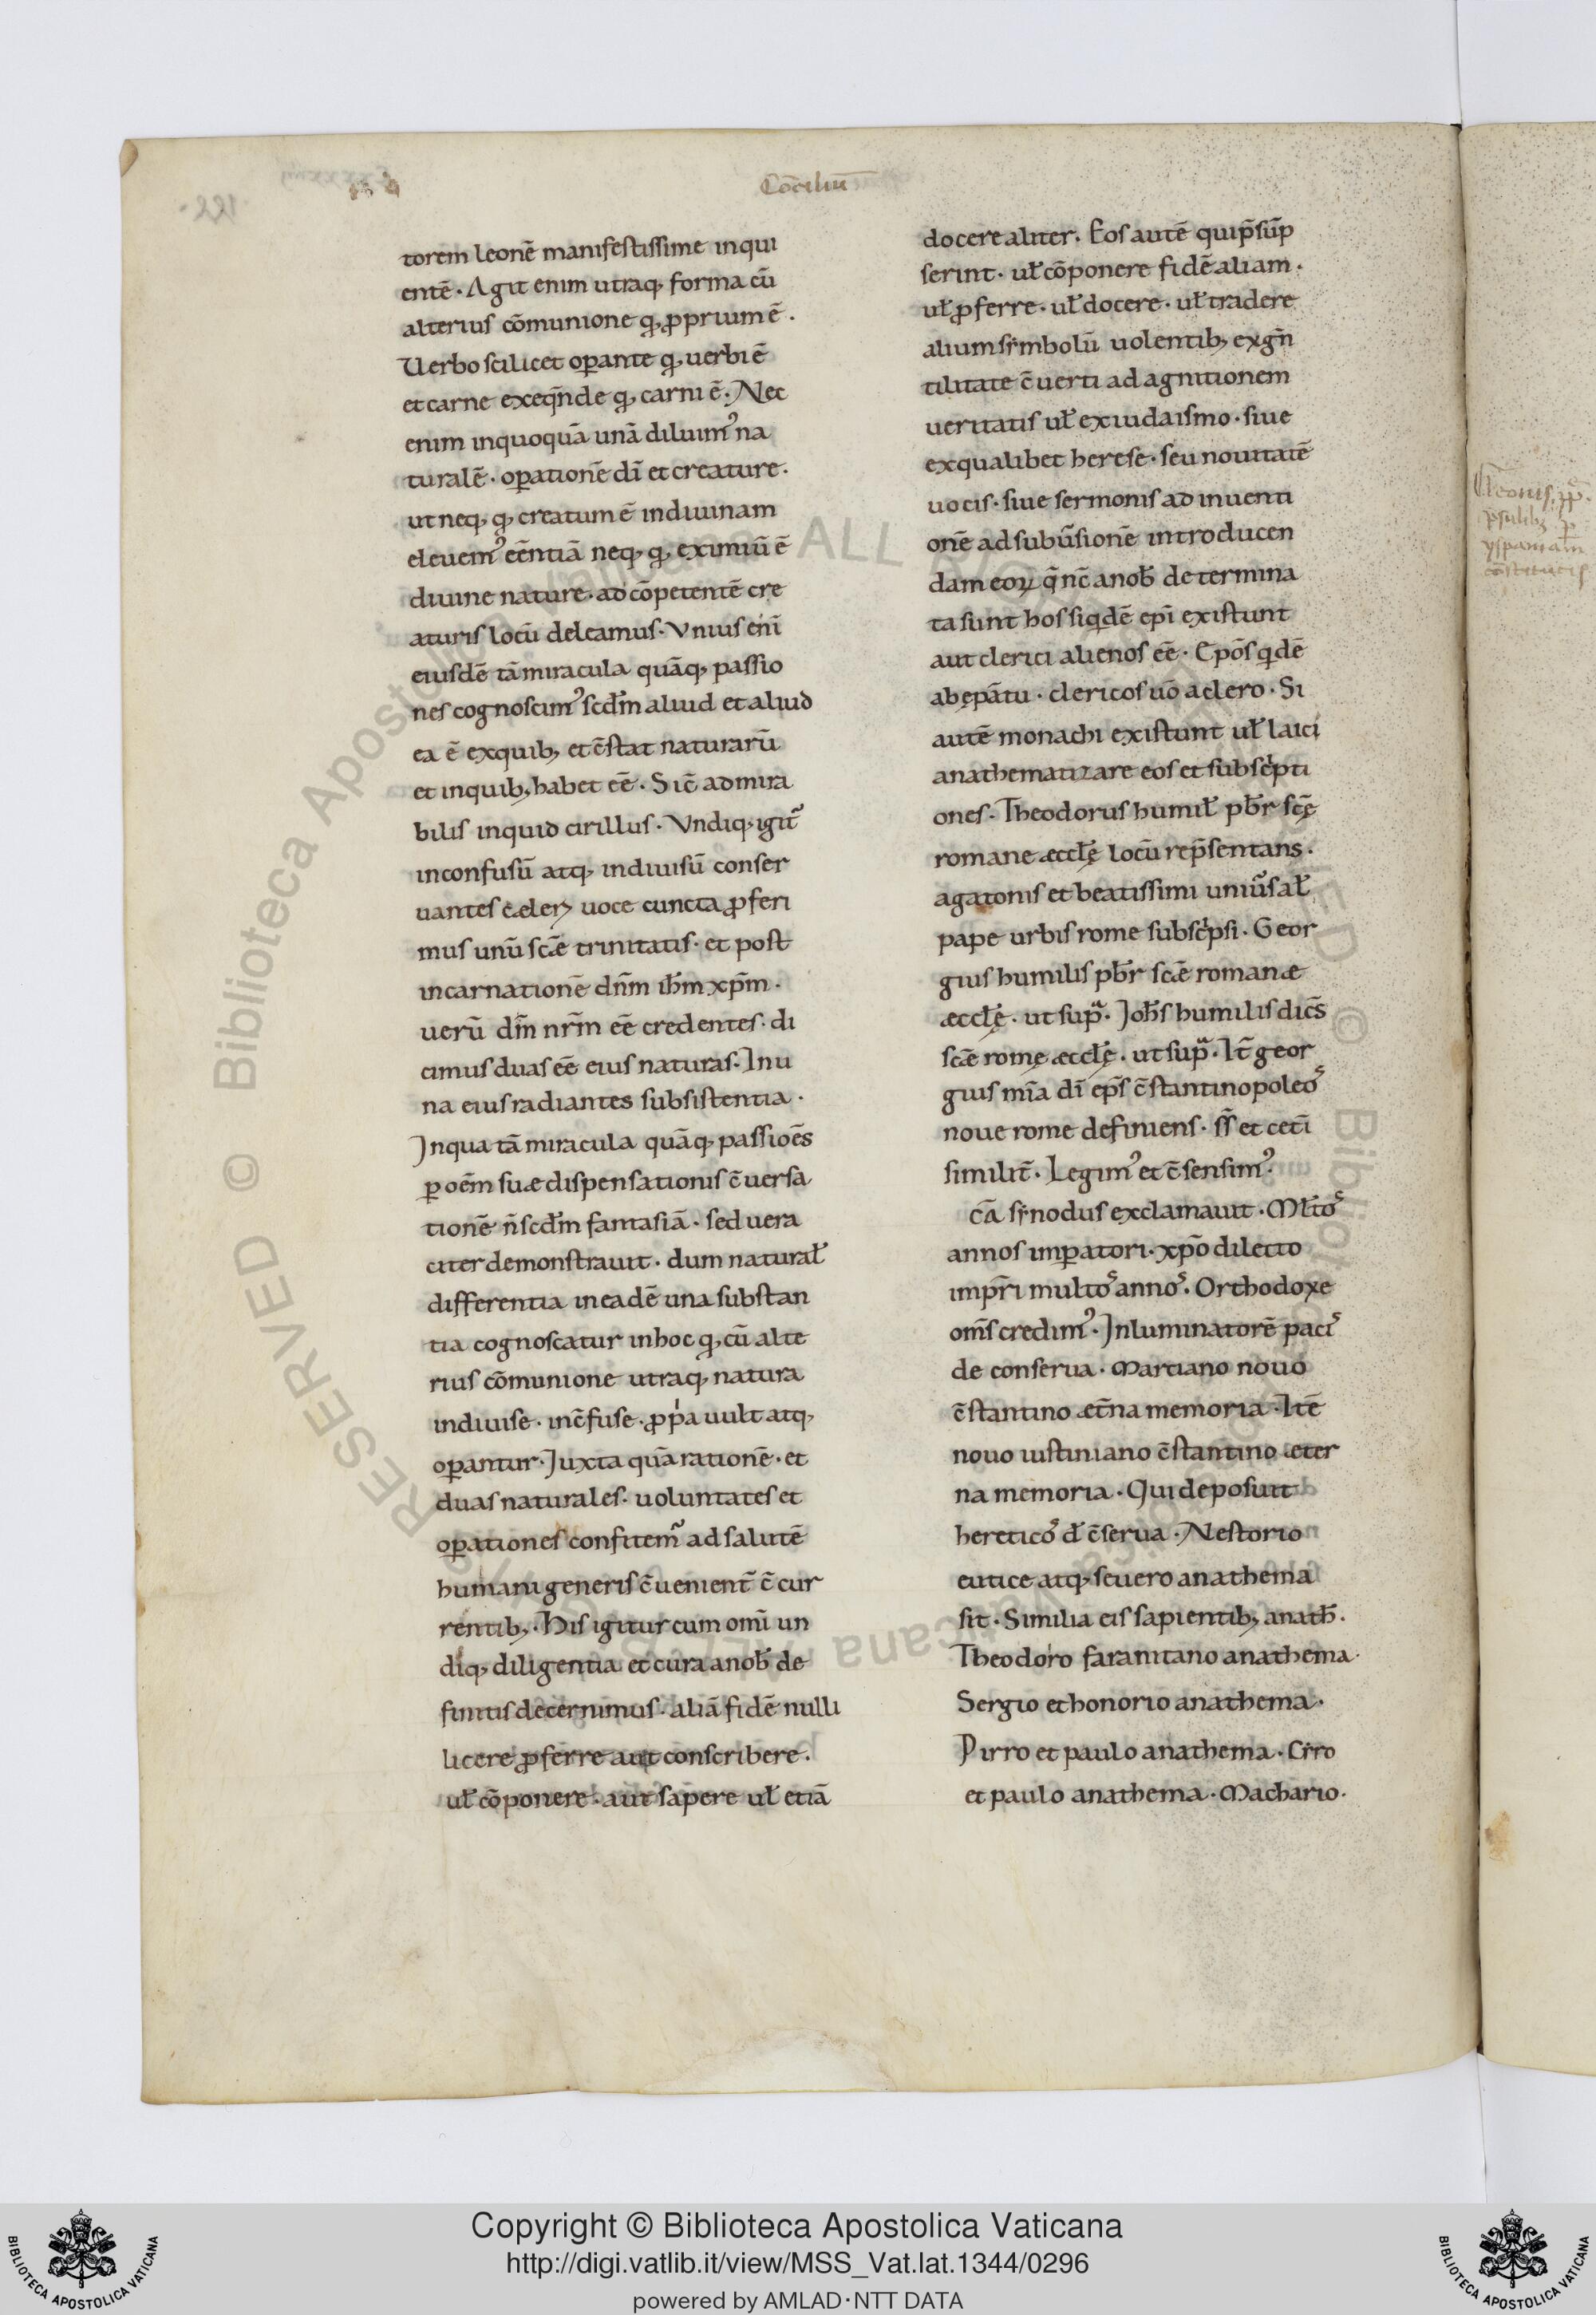 Cōciliū
torem leonē manifestissime inqui
entē · Agit enim utraq; forma cū
alterius cōmunione q; ꝓprium ē ·
Uerbo scilicet oꝑante q; uerbi ē
et carne exeq̄nde q; carni ē · Nec
enim inquoquā unā diluim᷒ na
turalē · oꝑationē dī et creature ·
ut neq; q; creatum ē indiuinam
eleuem᷒ eēntiā neq; q; eximiū ē
diuine nature · ad cōpetentē cre
aturis locū deleamus · Vnius enī
eiusdē tā miracula quāq; passio
nes cognoscim᷒ scđm aliud et aliud
ea ē exquib; et c̄stat naturarū
et inquib; habet eē · Sic̄ admira
bilis inquid cirillus · Vndiq; igit᷑
inconfusū atq; indiuisū conser
uantes celeꝝ uoce cuncta ꝓferi
mus unū scǣ trinitatis · et post
incarnationē dn̄m ihm̄ xpm̄ ·
uerū dm̄ nrm̄ eē credentes · di
cimus duas eē eius naturas · Inu
na eius radiantes subsistentia ·
Inqua tā miracula quāq; passioēs
ꝑ oēm suæ dispensationis c̄uersa
tionē n̄ scđm fantasiā · sed uera
citer demonstrauit · dum natural̄
differentia ineadē una substan
tia cognoscatur inhoc q; cū alte
rius cōmunione utraq; natura
indiuise · inc̄fuse · ꝓpͥa uult atq;
oꝑantur · Juxta quā rationē · et
duas naturales · uoluntates et
oꝑationes confitem᷑ ad salutē
humani generis c̄uenient̄ c̄cur
rentib; · His igitur cum omī un
diq; diligentia et cura anob̄ de
finitis decernimus · aliā fidē nulli
licere ꝓferre aut conscribere ·
ul̄ cōponere · aut sapere ul̄ etiā
docere aliter · Eos autē quip̄sūp
serint · ul̄ cōponere fidē aliam ·
ul̄ ꝓferre · ul̄ docere · ul̄ tradere
alium simbolū uolentib; exgn̄
tilitate c̄uerti ad agnitionem
ueritatis ul̄ exiudaismo · siue
exqualibet herese · seu nouitatē
uocis · siue sermonis adinuenti
onē adsubu᷑sionē introducen
dam eoꝝ q̄ nc̄ anob̄ determina
ta sunt hos siqdē epī existunt
aut clerici alienos eē · Epōs qdē
abepātu · clericos uō aclero · Si
autē monachi existunt ul̄ laici
anathematizare eos et subscͥpti
ones · Theodorus humil̄ pbr̄ scę̄
romane æccl̄ę locū rep̄sentans ·
agatonis et beatissimi uniu᷑sal̄
pape urbis rome subscͥpsi · Geor
gius humilis pbr̄ scǣ romanæ
æccl̄ę · ut supͣ · Joh̄s humilis dic̄s
scǣ romę æccl̄ę · ut supͣ · It̄ geor
gius mīa dī eps̄ c̄stantinopoleo᷒
noue rome definiens · ss̄ et cetī
similit̄ · Legim᷒ et c̄sensim᷒ ·
cā sinodus exclamauit · Ml̄to᷒
annos imꝑatori · xpō dilecto
impr̄i multo᷒ anno᷒ · Orthodoxe
oms̄ credim᷒ · Inluminatorē paci᷒
de conserua · Martiano nouo
c̄stantino æt̄na memoria · Itē
nouo iustiniano c̄stantino æter
na memoria · Qui deposuit
heretico᷒ đ c̄serua · Nestorio
eutice atq; seuero anathema
sit · Similia eis sapientib; anath̄ ·
Theodoro faranitano anathema ·
Sergio et honorio anathema ·
Pirro et paulo anathema · Cirro
et paulo anathema · Machario ·
yspaniam
Copyright © Biblioteca Apostolica Vaticana
http://digi.vatlib.it/view/MSS_Vat.lat.1344/0296
powered by AMLAD·NTT DATA
BIBLIOTECA APOSTOLICA VATICANA
BIBLIOTECA APOSTOLICA VATICANA